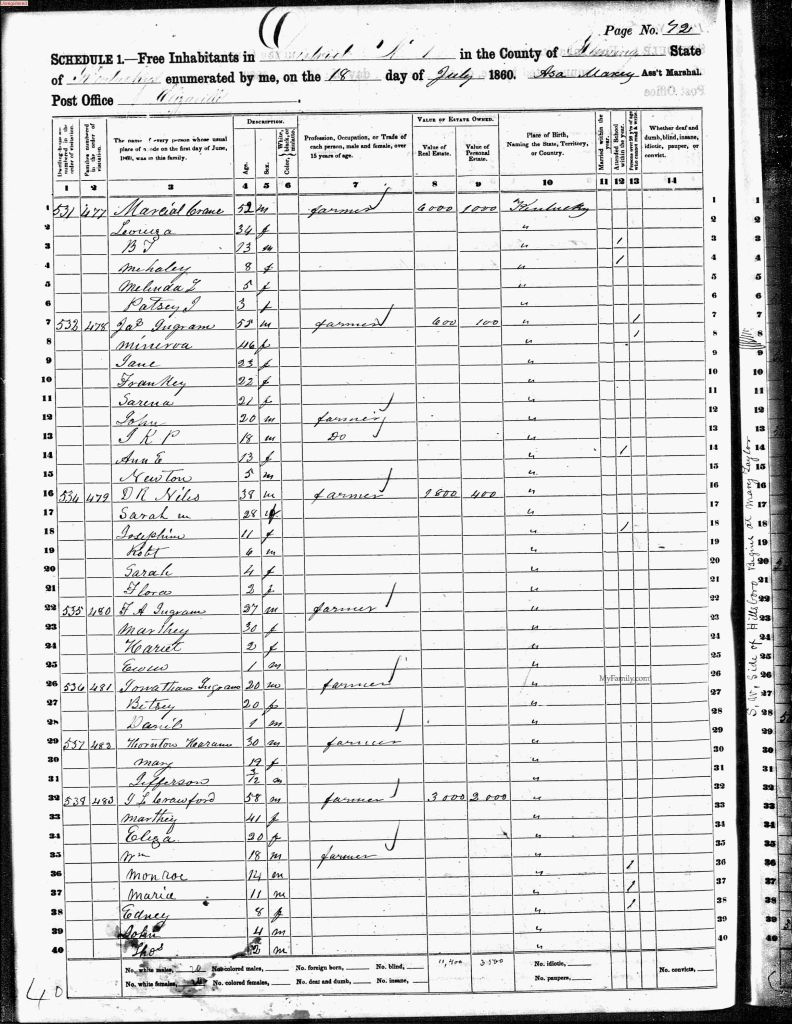 Page No. 72
SCHEDULE 1.—Free Inhabitants in District No 1 in the County of Fleming State
of Kentucky enumerated by me, on the 18 day of July 1860. Asa Maxey Ass't Marshal.
Post Office
DESCRIPTION. VALUE OF ESTATE OWNED.
Dwelling-houses—numbered in the order of visitation. Families numbered in the order of visitation. The name of every person whose usual place of abode on the first day of June, 1860, was in this family. Age. Sex. Color, White, black, or mulatto. Profession, Occupation, or Trade of each person, male and female, over 15 years of age. Value of Real Estate. Value of Personal Estate. Place of Birth, Naming the State, Territory, or Country. Married within the year. Attended School within the year. Persons over 20 y'rs of age who cannot read & write. Whether deaf and dumb, blind, insane, idiotic, pauper, or convict.
1 2 3 4 5 6 7 8 9 10 11 12 13 14
1 531 477 Marcial Crane 52 m farmer 6000 1000 Kentucky 1
2 Louiza 34 f " 2
3 B T 13 m " 1 3
4 Mehaley 8 f " 1 4
5 Melinda 5 f " 5
6 Patsey J 3 f " 6
7 532 478 Jas Ingram 55 m farmer 600 100 " 1 7
8 Minerva 46 f " 1 8
9 Jane 23 f " 9
10 Frankey 22 f " 10
11 Sarena 21 f " 11
12 John 20 m farmer " 12
13 J K P 18 m Do " 13
14 Ann E 13 f " 1 14
15 Newton 5 m " 15
16 534 479 D R Niles 38 m farmer 1800 400 " 16
17 Sarah m 28 f " 17
18 Josephine 11 f " 1 18
19 Robt 6 m " 19
20 Sarah 4 f " 20
21 Flora 2 f " 21
22 535 480 F A Ingram 27 m farmer " 22
23 Marthey 30 f " 23
24 Hariet 2 f " 24
25 Ewen 1 m " 25
26 536 481 Jonathan Ingram 20 m farmer " 26
27 Betsey 20 f " 27
28 Daniel 1 m " 28
29 537 482 Thornton Harams 30 m farmer " 29
30 Mary 19 f " 30
31 Jefferson 3/12 m " 31
32 538 483 J L Crawford 58 m farmer 3000 2000 " 32
33 Marthey 41 f " 33
34 Eliza 20 f " 34
35 Wm 18 m farmer " 35
36 Monroe 14 m " 1 36
37 Maria 11 m " 1 37
38 Edney 8 f " 1 38
39 John 4 m " 39
40 Thos 2 m " 40
No. white males, 20 No. colored males, No. foreign born, No. blind, 11,400 3500 No. idiotic, No. convicts,
No. white females, No. colored females, No. deaf and dumb, No. insane, No. paupers,
40
S.W. Side of Hillsboro Begins at Mary Taylor
MyFamily.com